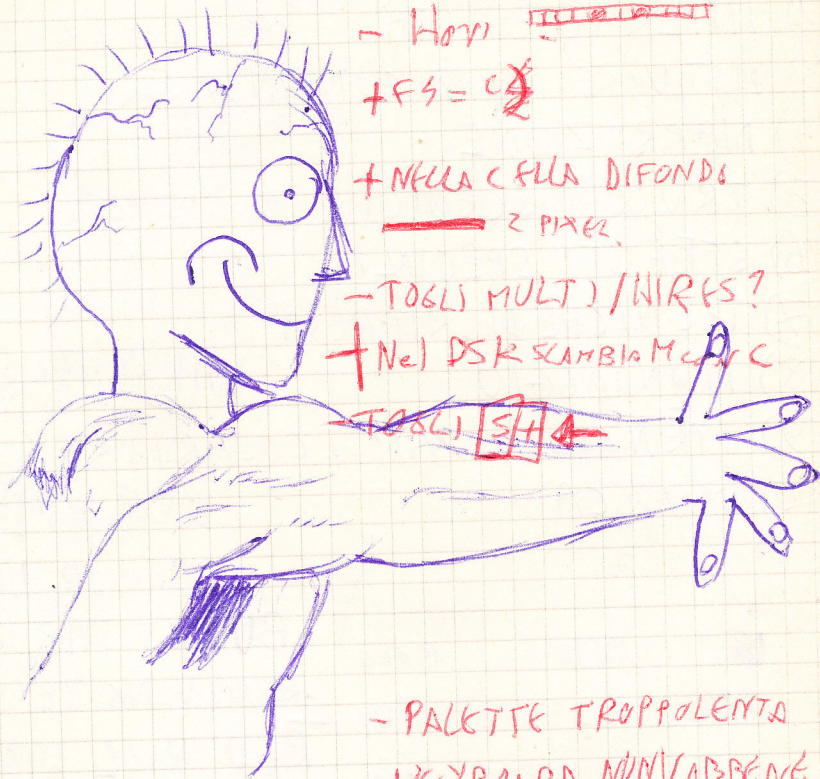 -
+ FS = C2
+ NELLA CELLA DI FONDO
2 PIXEL
- TOGLI MULTI / WIRES?
+ Nel DSK SCAMBIA M CON C
- TOGLI S +
- PALETTE TROPPO LENTA
NUN VA BBENE